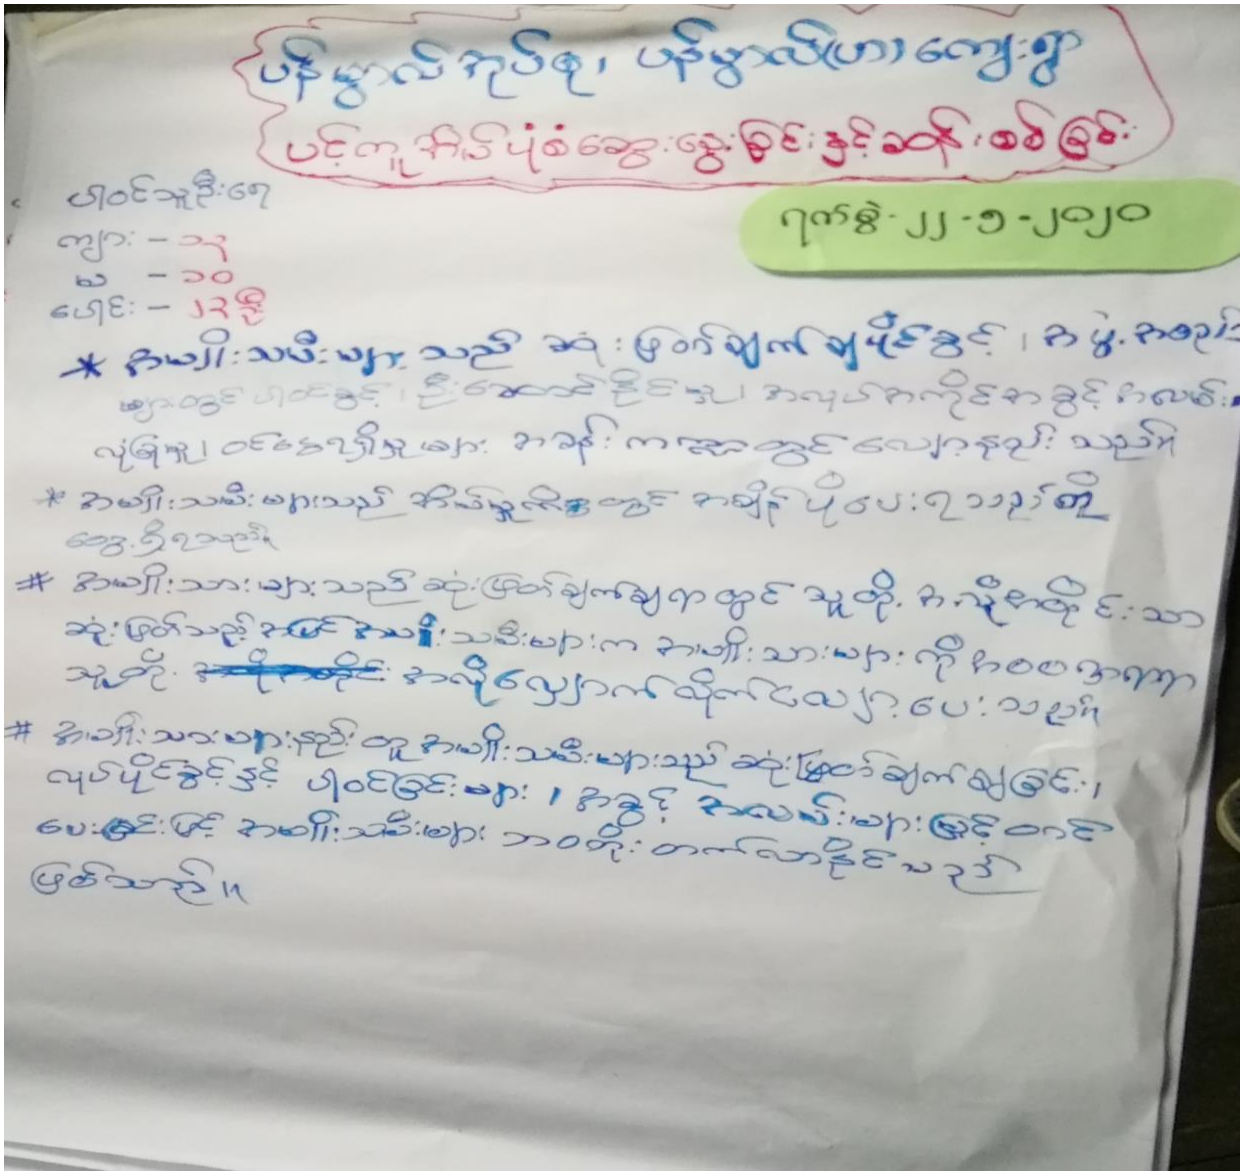 ပန်မွာလ်အုပ်စု၊ ပန်မွာလ်(ဟ)ကျေးရွာ
ပင့်ကူအိမ်ပုံစံဆွေးနွေးခြင်းနှင့်ဆန်းစစ်ခြင်း
ပါဝင်သူဦးရေ
ရက်စွဲ - ၂၂ - ၅ - ၂၀၂၀
ကျား - ၁၃
မ - ၁၀
ပေါင်း - ၂၃ ဦး
* အမျိုးသမီးများသည် ဆုံးဖြတ်ချက်ချပိုင်ခွင့်၊ အဖွဲ့အစည်း
များတွင် ပါဝင်ခွင့်၊ ဦးဆောင်နိုင်မှု၊ အလုပ်အကိုင်အခွင့်အလမ်း၊
လုံခြုံမှု၊ ဝင်ငွေရရှိမှုများ အခန်းကဏ္ဍတွင် လျော့နည်းသည်။
* အမျိုးသမီးများသည် အိမ်မှုကိစ္စတွင် အချိန်ပိုပေးရသည်ကို
တွေ့ရှိရသည်။
# အမျိုးသားများသည် ဆုံးဖြတ်ချက်ချရာတွင် သူတို့အလိုအတိုင်းသာ
ဆုံးဖြတ်သည့်အပြင် အမျိုးသမီးများက အမျိုးသားများကို အစစအရာရာ
သူတို့ အလိုလျှောက်လိုက်လျောပေးသည်။
# အမျိုးသားများနည်းတူ အမျိုးသမီးများသည် ဆုံးဖြတ်ချက်ချခြင်း၊
လုပ်ပိုင်ခွင့်နှင့် ပါဝင်ခြင်းများ၊ အခွင့်အလမ်းများ မြှင့်တင်
ပေးခြင်းဖြင့် အမျိုးသမီးများ ဘဝတိုးတက်လာနိုင်မည်
ဖြစ်သည်။